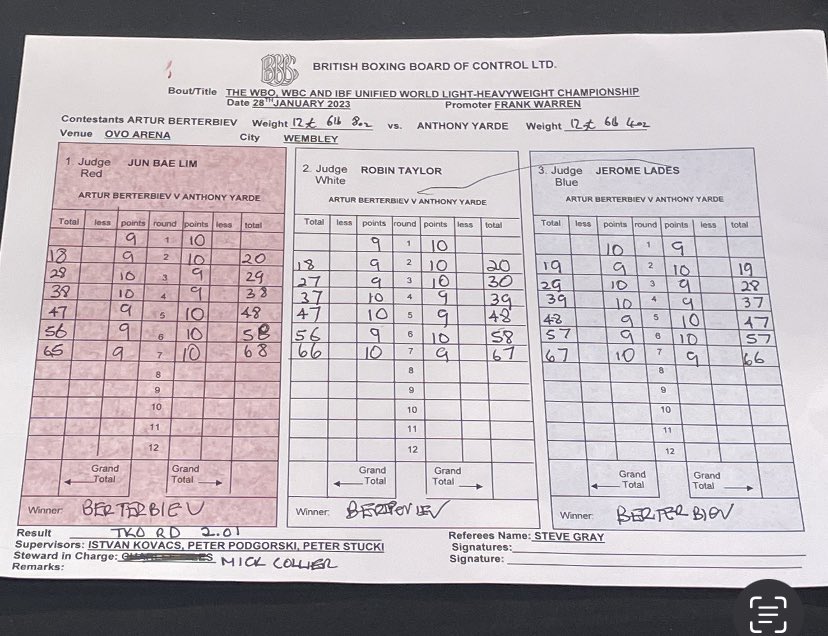 BBBC
BRITISH BOXING BOARD OF CONTROL LTD.
Bout/Title THE WBO, WBC AND IBF UNIFIED WORLD LIGHT-HEAVYWEIGHT CHAMPIONSHIP
Date 28TH JANUARY 2023 Promoter FRANK WARREN
Contestants ARTUR BERTERBIEV Weight 12st 6lb 8oz vs. ANTHONY YARDE Weight 12st 6lb 4oz
Venue OVO ARENA City WEMBLEY
1. Judge JUN BAE LIM
Red
ARTUR BERTERBIEV V ANTHONY YARDE
Total less points round points less total
9 1 10
18 9 2 10 20
28 10 3 9 29
38 10 4 9 38
47 9 5 10 48
56 9 6 10 58
65 9 7 10 68
8
9
10
11
12
Grand Grand
Total Total
Winner: BERTERBIEV
2. Judge ROBIN TAYLOR
White
ARTUR BERTERBIEV V ANTHONY YARDE
Total less points round points less total
9 1 10
18 9 2 10 20
27 9 3 10 30
37 10 4 9 39
47 10 5 9 48
56 9 6 10 58
66 10 7 9 67
8
9
10
11
12
Grand Grand
Total Total
Winner:
3. Judge JEROME LADES
Blue
ARTUR BERTERBIEV V ANTHONY YARDE
Total less points round points less total
10 1 9
19 9 2 10 19
29 10 3 9 28
39 10 4 9 37
48 9 5 10 47
57 9 6 10 57
67 10 7 9 66
8
9
10
11
12
Grand Grand
Total Total
Winner: BERTERBIEV
Result TKO RD 2.01
Supervisors: ISTVAN KOVACS, PETER PODGORSKI, PETER STUCKI
Steward in Charge: MICK COLLIER
Remarks:
Referees Name: STEVE GRAY
Signatures:
Signature: